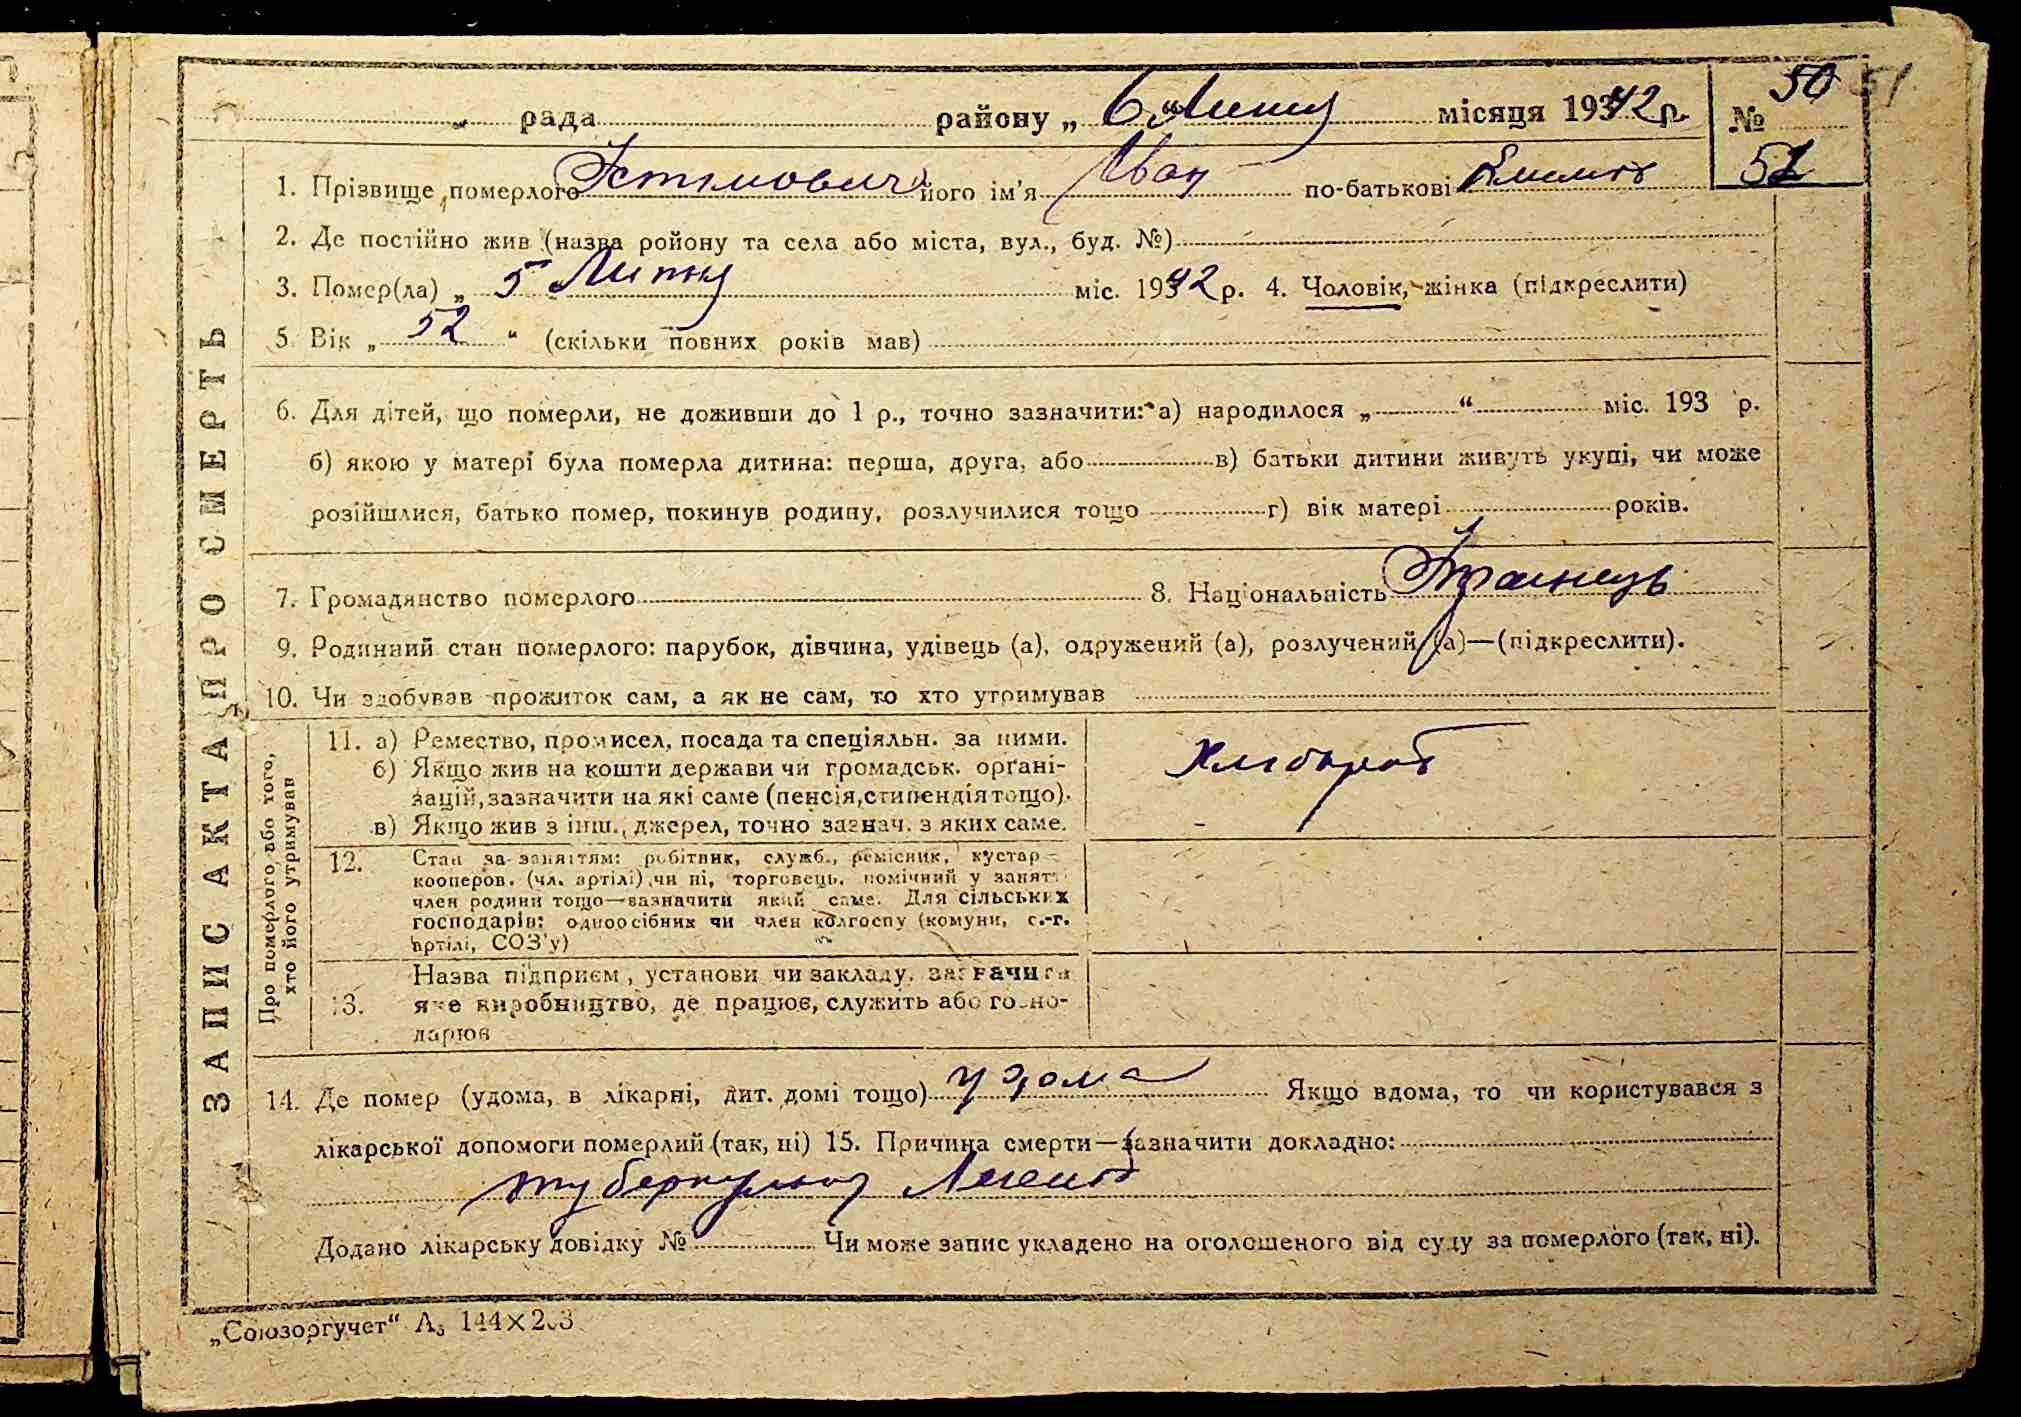 рада району „ 6 “ Липня місяця 1942 р. № 50 51
52
1. Прізвище померлого Устимович його ім'я Іван по-батькові
2. Де постійно жив (назва ройону та села або міста, вул., буд. №)
3. Помер(ла) „ 5 Липня міс. 1942 р. 4. Чоловік, жінка (підкреслити)
5. Вік „ 52 “ (скільки повних років мав)
6. Для дітей, що померли, не доживши до 1 р., точно зазначити: а) народилося „ “ міс. 193 р.
б) якою у матері була померла дитина: перша, друга, або в) батьки дитини живуть укупі, чи може
розійшлися, батько помер, покинув родину, розлучилися тощо г) вік матері років.
7. Громадянство померлого 8. Національність Українець
9. Родинний стан померлого: парубок, дівчина, удівець (а), одружений (а), розлучений (а)—(підкреслити).
10. Чи здобував прожиток сам, а як не сам, то хто утримував
ЗАПИС АКТА ПРО СМЕРТЬ
Про померлого або того,
хто його утримував
11. а) Ремество, промисел, посада та спеціяльн. за ними.
б) Якщо жив на кошти держави чи громадськ. орґані-
зацій, зазначити на які саме (пенсія, стипендія тощо).
в) Якщо жив з інш., джерел, точно зазнач. з яких саме.
Хлібороб
12. Стан за заняттям: робітник, служб., ремісник, кустар
кооперов. (чл. артілі) чи ні, торговець, помічний у занятт
член родини тощо—зазначити який саме. Для сільських
господарів: одноосібних чи член колгоспу (комуни, с.-г.
артілі, СОЗ'у)
13. Назва підприєм, установи чи закладу, зазначити
яке виробництво, де працює, служить або госпо-
дарює
14. Де помер (удома, в лікарні, дит. домі тощо) удома Якщо вдома, то чи користувався з
лікарської допомоги померлий (так, ні) 15. Причина смерти—зазначити докладно:
туберкульоз Легень
Додано лікарську довідку № Чи може запис укладено на оголошеного від суду за померлого (так, ні).
„Союзоргучет“ А₅ 144×203